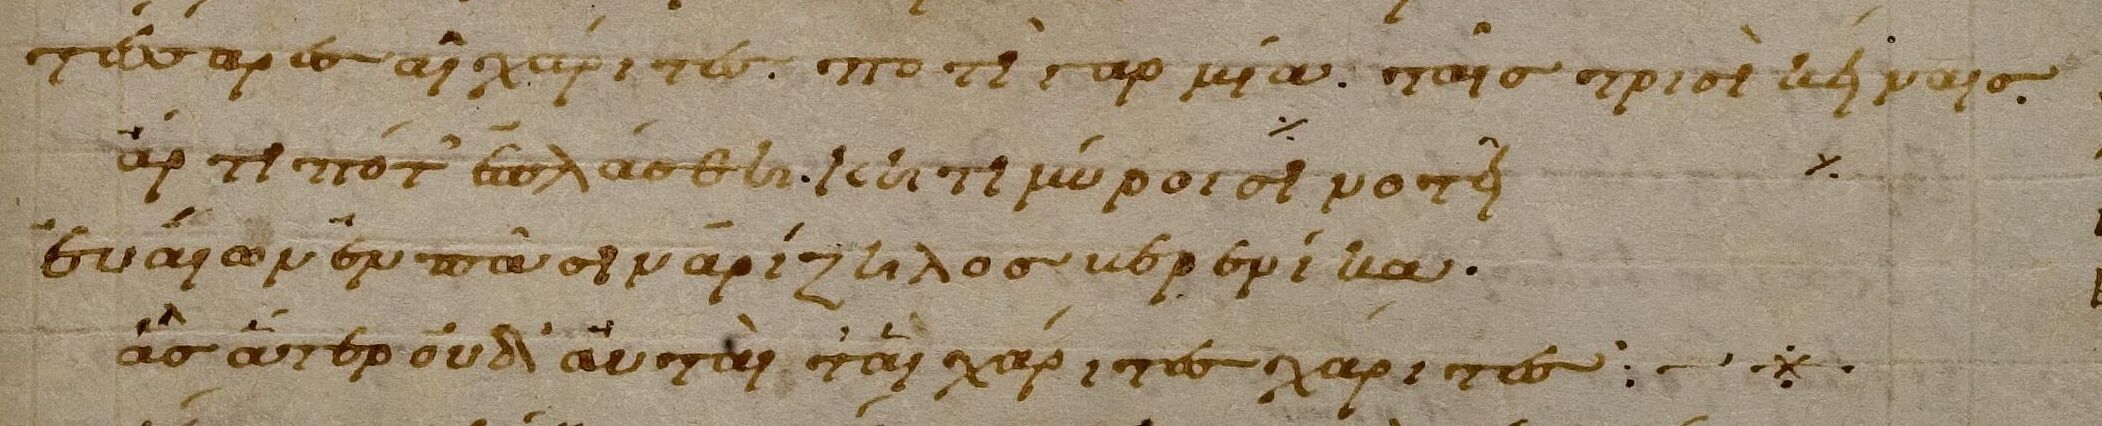 τέσσαρες αἱ χάριτες. ποτὶ γὰρ μία. ταῖς τρισὶ κείναις.
ἄρτι ποτ' ἐπλάσθη. κἤτι μύροισι νοτεῖ
εὐαίων ἐν πᾶσιν ἀρίζηλος βερενίκα.
ἇς ἄτερ οὐδ' αὐταὶ ταὶ χάριτες χάριτες :